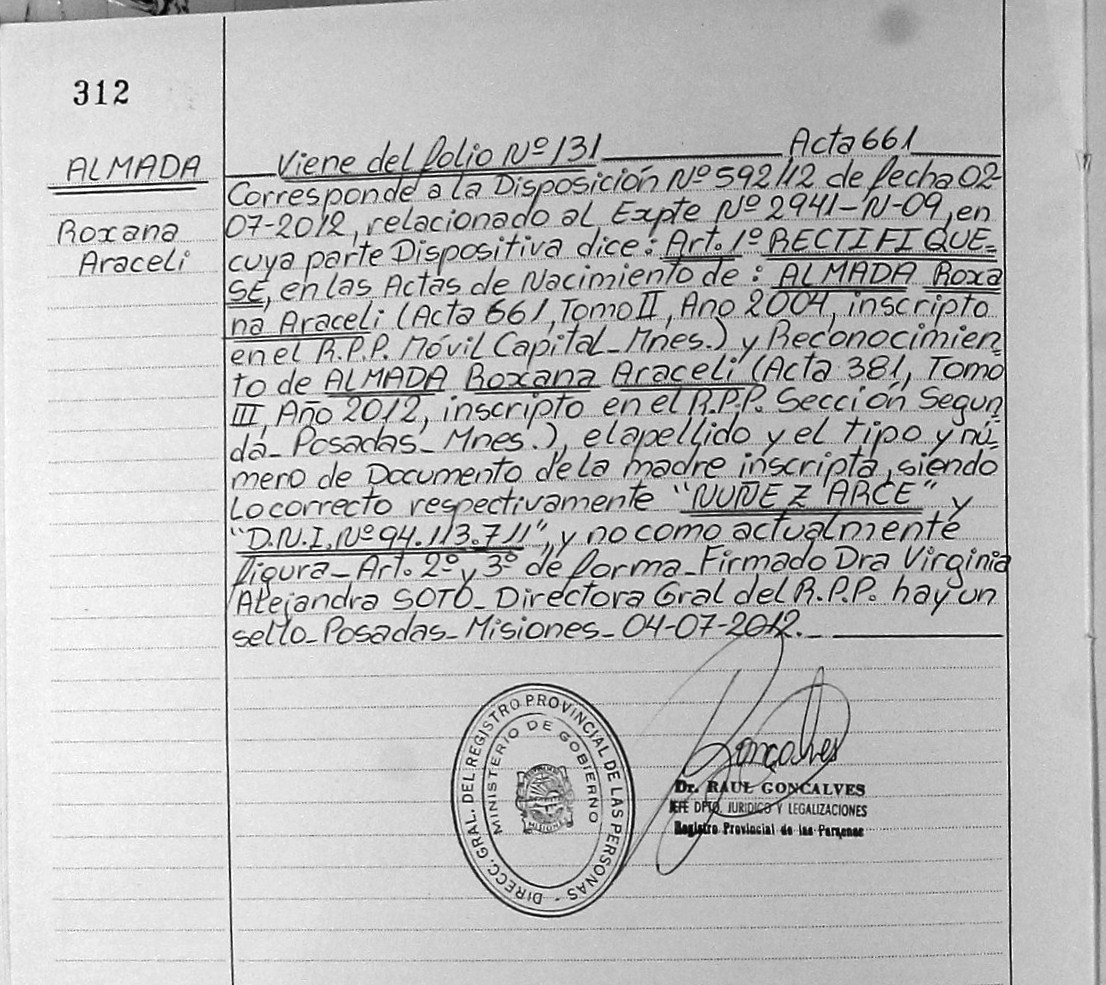 312
ALMADA
Roxana
Araceli
Viene del folio Nº 131 Acta 661
Corresponde a la Disposición Nº 592/12 de fecha 02-
07-2012, relacionado al Expte Nº 2941-N-09, en
cuya parte Dispositiva dice: Art. 1º RECTIFIQUE-
SE, en las Actas de Nacimiento de: ALMADA Roxa
na Araceli (Acta 661, Tomo II, Ano 2004, inscripto
en el R.P.P. Móvil Capital_Mnes.) y Reconocimien
to de ALMADA Roxana Araceli (Acta 381, Tomo
III, Año 2012, inscripto en el R.P.P. Sección Segun
da_Posadas_Mnes.), el apellido y el tipo y nú
mero de Documento de la madre inscripta, siendo
lo correcto respectivamente "NUÑEZ ARCE" y
"D.N.I. Nº 94.113.711", y no como actualmente
figura_Art. 2º y 3º de forma_Firmado Dra Virginia
Alejandra SOTO_Directora Gral del R.P.P. hay un
sello_Posadas_Misiones_04-07-2012.
DIRECC. GRAL. DEL REGISTRO PROVINCIAL DE LAS PERSONAS -
MINISTERIO DE GOBIERNO
MISIONES
Goncalves
Dr. RAUL GONCALVES
JEFE DPTO. JURIDICO Y LEGALIZACIONES
Registro Provincial de las Personas